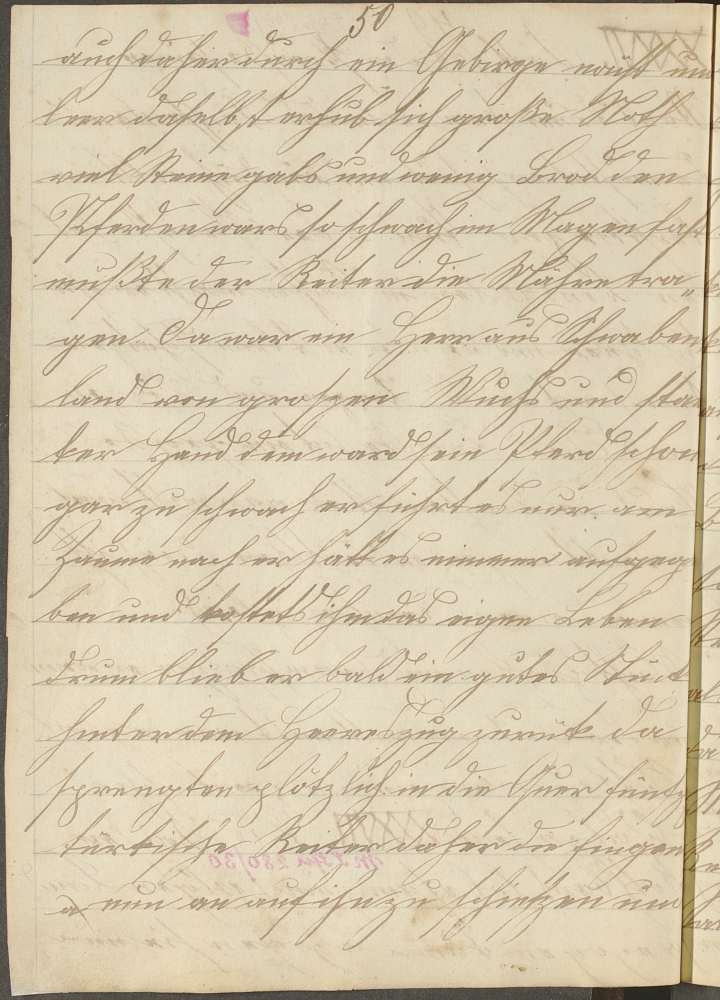 50
auch daher durch ein Gebirge wüst und
leer daselbst erhub sich große Noth
viel Steine gabs und wenig Brod den
Pferden wars so schwach im Magen fast
mußte der Reiter die Mähre tra„
gen. Da war ein Herr aus Schwaben
land von grossen Wuchs und star
ker Hand dem ward sein Pferd schon
gar zu schwach er führt es nur am
Zaume nach er hätt es nimmer aufgege
ben und kostets ihm das eigen Leben
drum blieb er bald ein gutes Stück
hinter dem Heereszug zurück da
sprengten plötzlich in die Quer fünfz
türkische Reiter daher die fingen
a nun an auf ihn zu schießen und